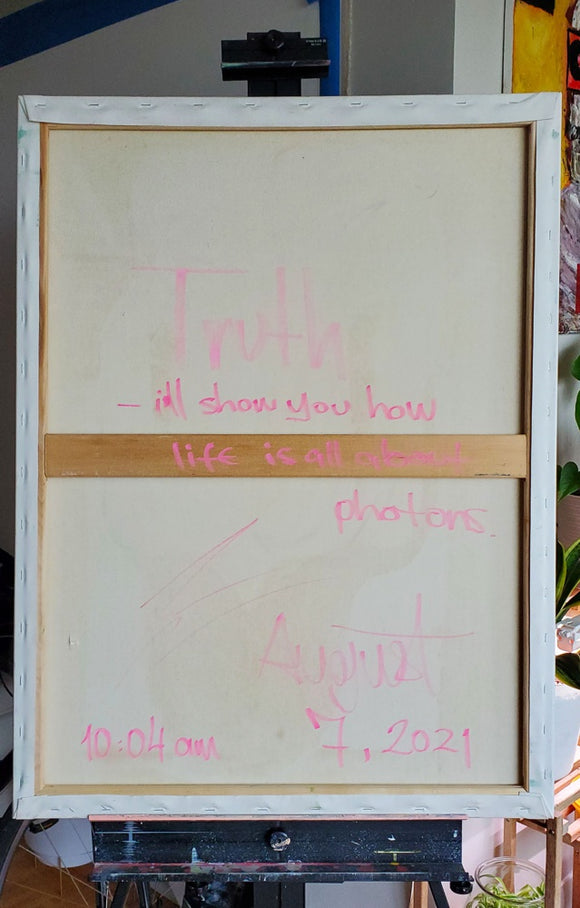 Truth
- ill show you how
life is all about
photons.
August
10:04 am 7, 2021